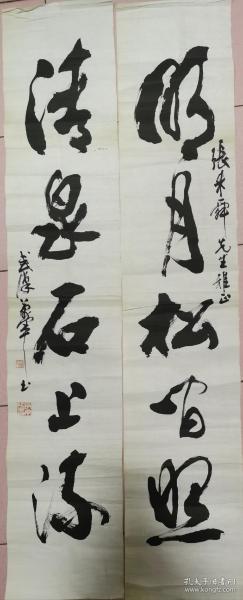 明月松间照
張來舜先生雅正
清泉石上流
书
孔夫子旧书网